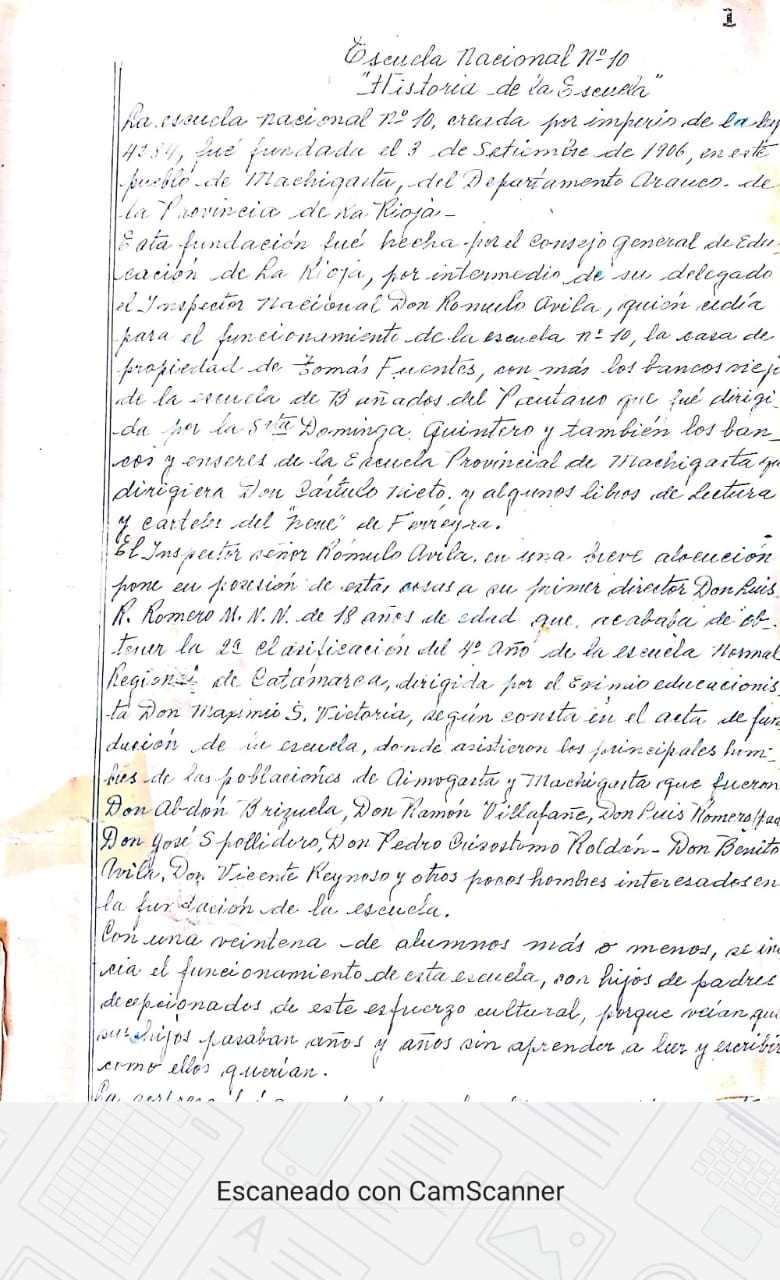 1
Escuela Nacional Nº 10
"Historia de la Escuela"
La escuela nacional Nº 10, creada por imperio de la ley
4384, fué fundada el 3 de Setiembre de 1906, en este
pueblo de Machigasta, del Departamento Arauco - de
la Provincia de La Rioja -
Esta fundación fué hecha por el Consejo General de Edu-
cación de La Rioja, por intermedio de su delegado
el Inspector Nacional Don Romulo Avila, quién cedía
para el funcionamiento de la escuela nº 10, la casa de
propiedad de Tomás Fuentes, con más los bancos viej
de la escuela de Bañados del Pantano que fué dirigi-
da por la Srta Dominga Quintero y también los ban-
cos y enseres de la Escuela Provincial de Machigasta qu
dirigiera Don Cástulo Nieto, y algunos libros de lectura
y carteles del "Nene" de Ferreyra.
El Inspector señor Rómulo Avila, en una breve alocución
pone en posesión de estas cosas a su primer director Don Luis
R. Romero M. N. N. de 18 años de edad que, acababa de ob-
tener la 2ª clasificación del 4º año de la escuela Normal
Regional de Catamarca, dirigida por el Eximio educacionis
ta Don Maximio S. Victoria, según consta en el acta de fun
dación de la escuela, donde asistieron los principales hom-
bres de las poblaciones de Aimogasta y Machigasta que fueron
Don Abdón Brizuela, Don Ramón Villafañe, Don Luis Romero (pad
Don José Spollidoro, Don Pedro Crisostomo Roldán - Don Benito
Avila, Don Vicente Reynoso y otros pocos hombres interesados en
la fundación de la escuela.
Con una veintena de alumnos más o menos, se ini
cia el funcionamiento de esta escuela, son hijos de padres
decepcionados de este esfuerzo cultural, porque veían que
sus hijos pasaban años y años sin aprender a leer y escribir
como ellos querían.
La
Escaneado con CamScanner